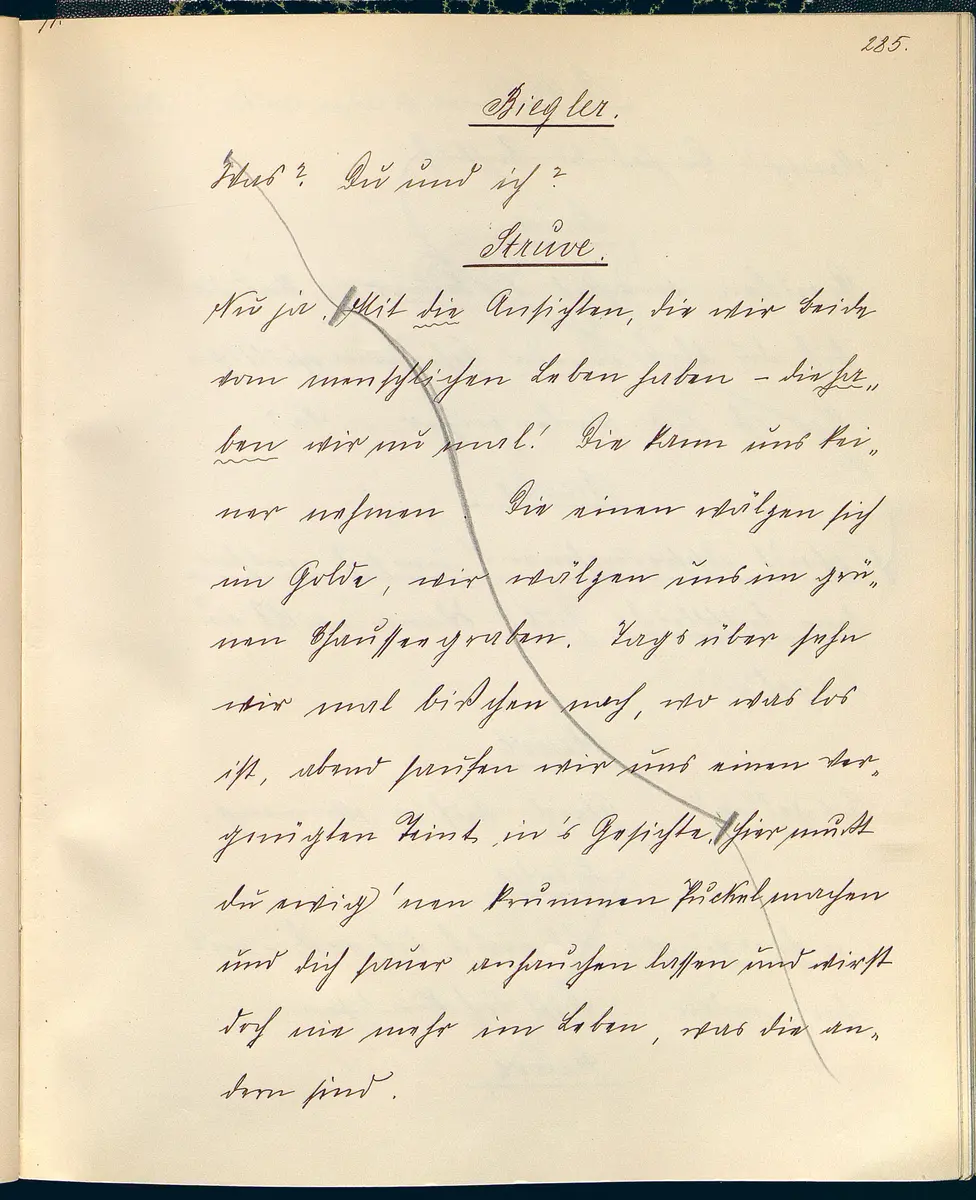 285.
Biegler.
Was? Du und ich?
Struve.
Nu ja. Mit die Ansichten, die wir beide
vom menschlichen Leben haben – die ha„
ben wir nu mal! Die kann uns kei„
ner nehmen. Die einen wälzen sich
im Golde, wir wälzen uns im grü„
nen Chausseegraben. Tags über sehn
wir mal bißchen nach, wo was los
ist, abend saufen wir uns einen ver„
gnügten Teint in's Gesichte. Hier mußt
du ewig 'nen krummen Puckel machen
und dich sauer anhauchen lassen und wirst
doch nie mehr im Leben, was die an„
dern sind.